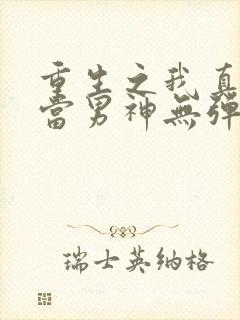 重生之我真
當男神無彈
瑞士英納格